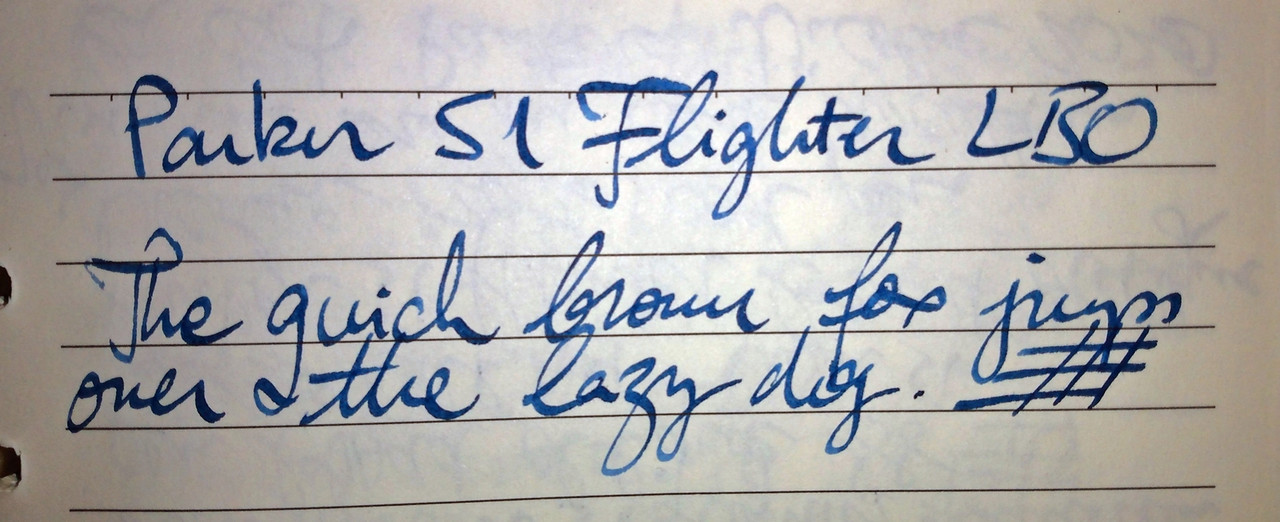 Parker 51 Flighter LBO
The quick brown fox jumps
over the lazy dog.